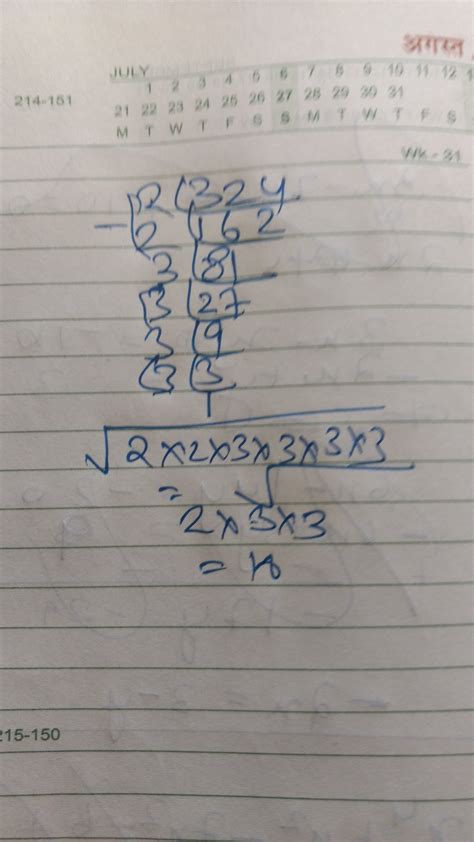 अगस्त
JULY
1 2 3 4 5 6 7 8 9 10 11 12 1
214-151
21 22 23 24 25 26 27 28 29 30 31
M T W T F S S M T W T F S
Wk - 31
2 324
2 162
3 81
3 27
3 9
3 3
1
√2×2×3×3×3×3
=
2×3×3
= 18
215-150